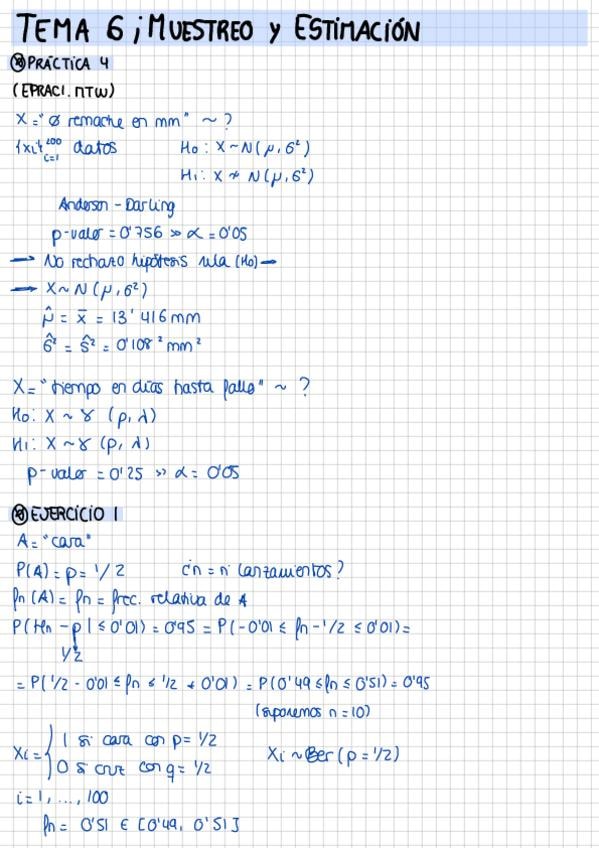 TEMA 6 ; MUESTREO y ESTIMACIÓN
PRÁCTICA 4
(EPRAC1.MTW)
X = "Ø remache en mm" ~ ?
{xi}²⁰⁰ᵢ₌₁ datos H₀: X ~ N(μ, σ²)
H₁: X ≁ N(μ, σ²)
Anderson - Darling
p-valor = 0'756 >> α = 0'05
→ No rechazo hipótesis nula (H₀) →
→ X ~ N(μ, σ²)
μ̂ = x̄ = 13'416 mm
σ̂² = ŝ² = 0'108² mm²
X = "tiempo en días hasta fallo" ~ ?
H₀: X ~ γ (p, λ)
H₁: X ~ γ (p, λ)
p-valor = 0'25 >> α = 0'05
EJERCICIO 1
A = "cara"
P(A) = p = 1/2 ¿n = nº lanzamientos?
fn (A) = fn = frec. relativa de A
P(|fn - p| ≤ 0'01) = 0'95 = P(-0'01 ≤ fn - 1/2 ≤ 0'01) =
1/2
= P(1/2 - 0'01 ≤ fn ≤ 1/2 + 0'01) = P(0'49 ≤ fn ≤ 0'51) = 0'95
(suponemos n = 10)
Xi = { 1 si cara con p = 1/2 Xi ~ Ber (p = 1/2)
0 si cruz con q = 1/2
i = 1, ..., 100
fn = 0'51 ∈ [0'49, 0'51]